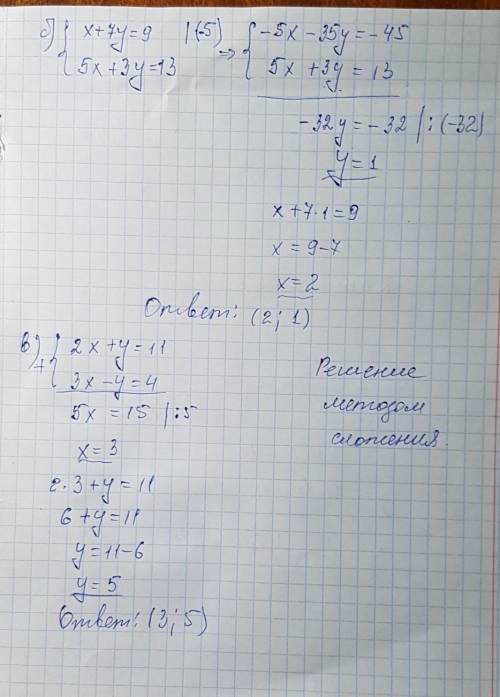 б) { x+7y=9 |(-5) ⇒ { -5x-35y=-45
5x+3y=13 5x+3y=13
-32y=-32 |:(-32)
y=1
x+7·1=9
x=9-7
x=2
Ответ: (2; 1)
в) + { 2x+y=11
3x-y=4
5x=15 |:5
x=3
2·3+y=11
6+y=11
y=11-6
y=5
Ответ: (3; 5)
Решение
методом
сложения.